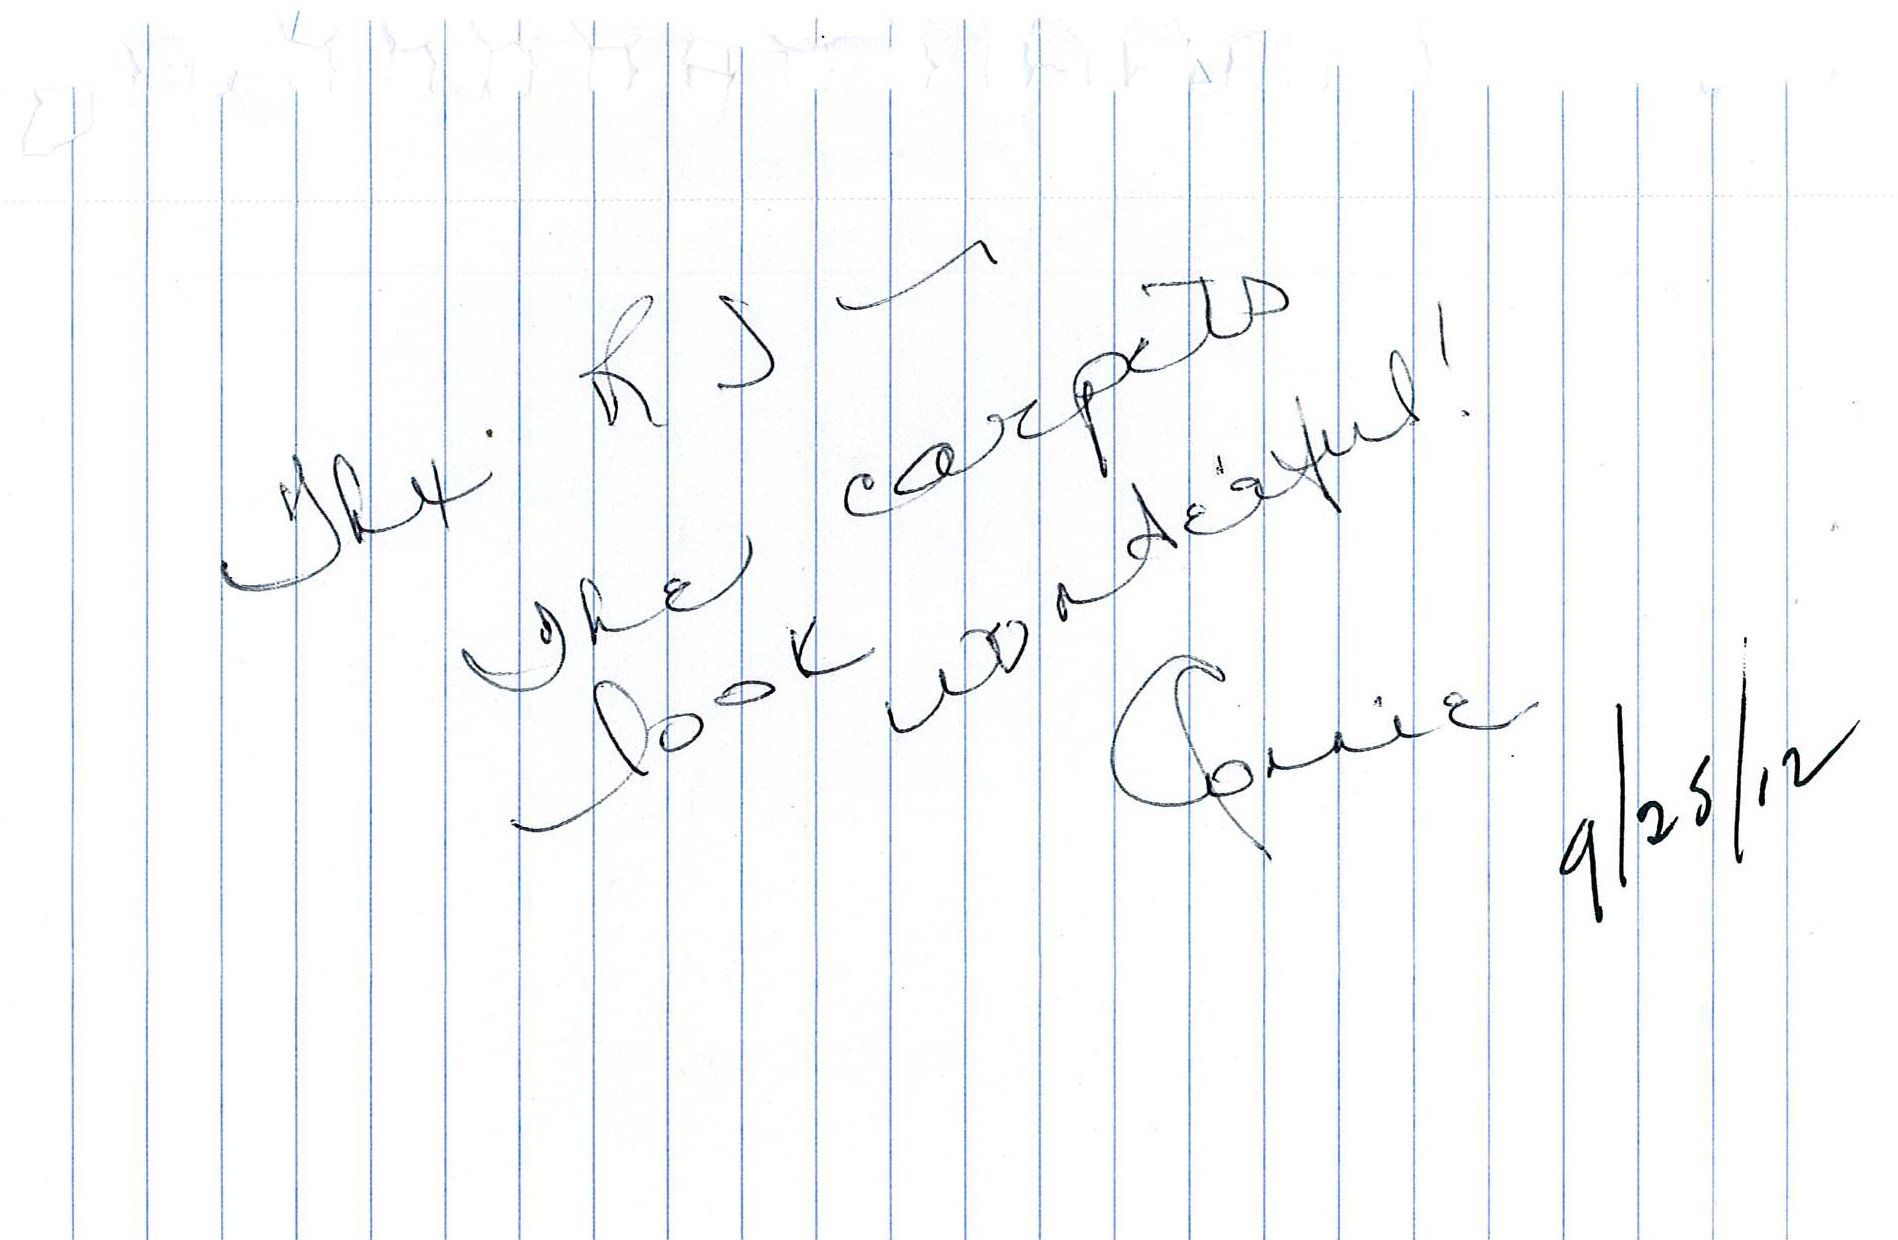 Thx. RJ —
The carpets
look wonderful!
Connie
9/25/12